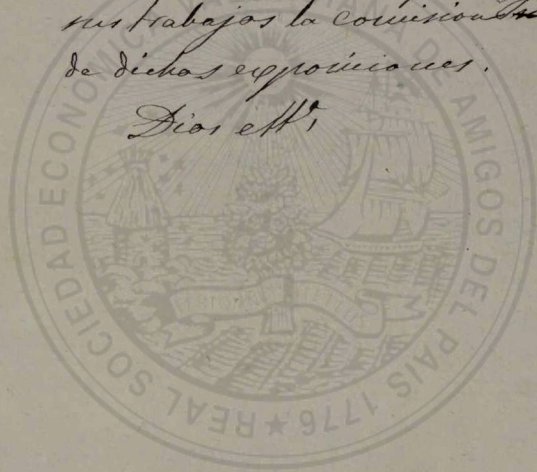 sus trabajos la comision
de dichas exposiciones.
Dios etta
REAL SOCIEDAD ECONOMICA DE AMIGOS DEL PAIS 1776